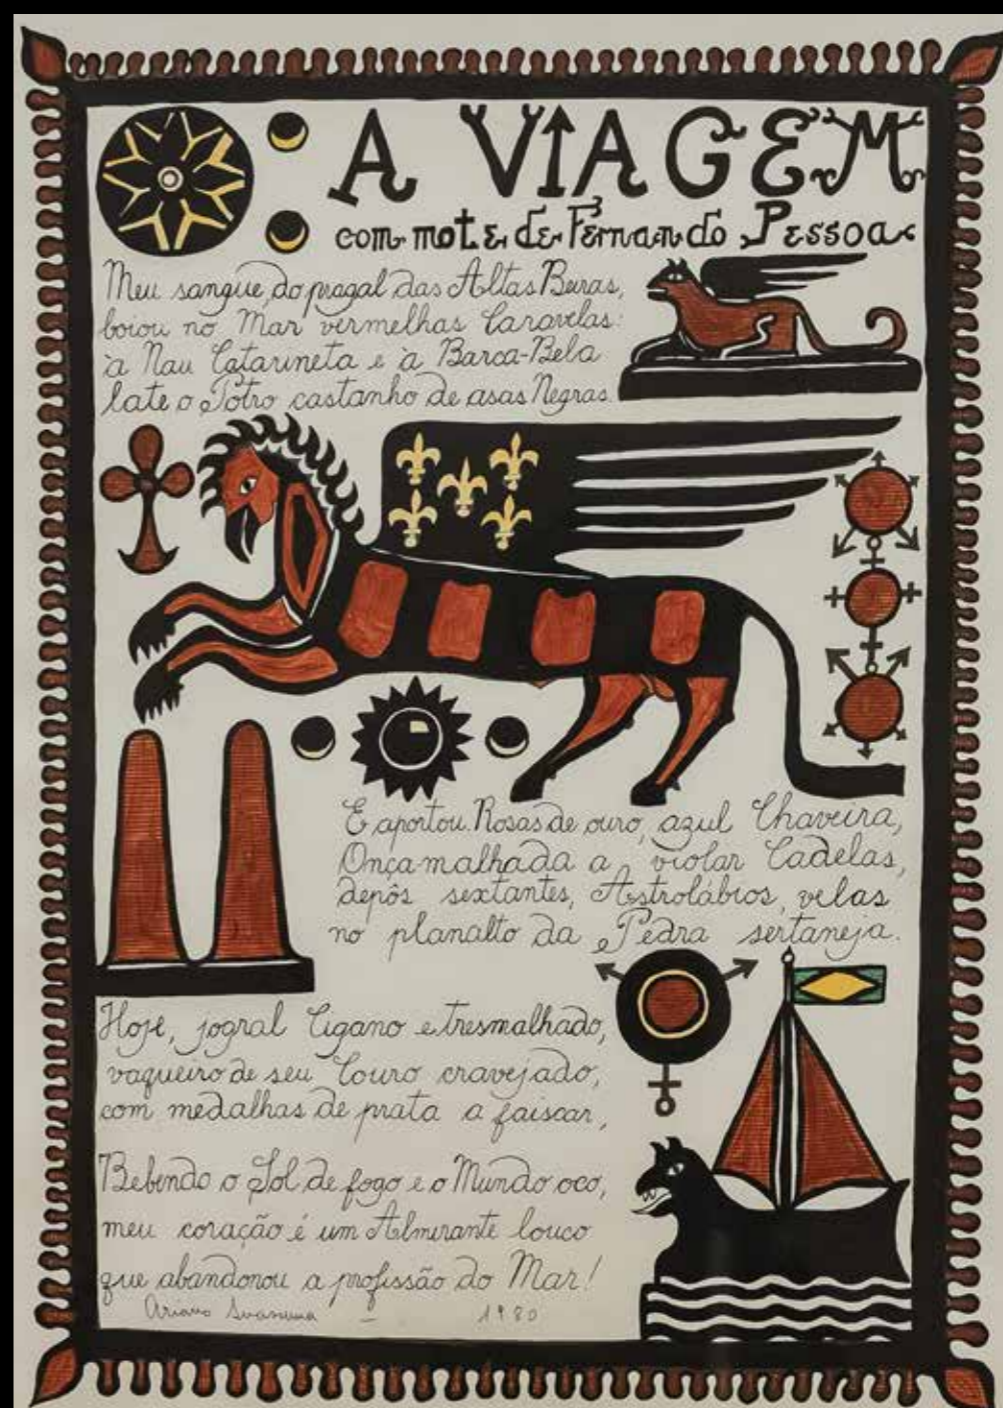 A VIAGEM
com mote de Fernando Pessoa
Meu sangue do pragal das Altas Beiras,
boiou no Mar vermelhas Caravelas:
à Nau Catarineta e à Barca-Bela
late o Potro castanho de asas Negras.
E aportou. Rosas de ouro, azul Chaveira,
Onça malhada a violar Cadelas,
depôs sextantes, Astrolábios, velas
no planalto da Pedra sertaneja.
Hoje, jogral Cigano e tresmalhado,
vaqueiro de seu Couro cravejado,
com medalhas de prata a faiscar,
Bebendo o Sol de fogo e o Mundo oco,
meu coração é um Almirante louco
que abandonou a profissão do Mar!
Ariano Suassuna - 1980